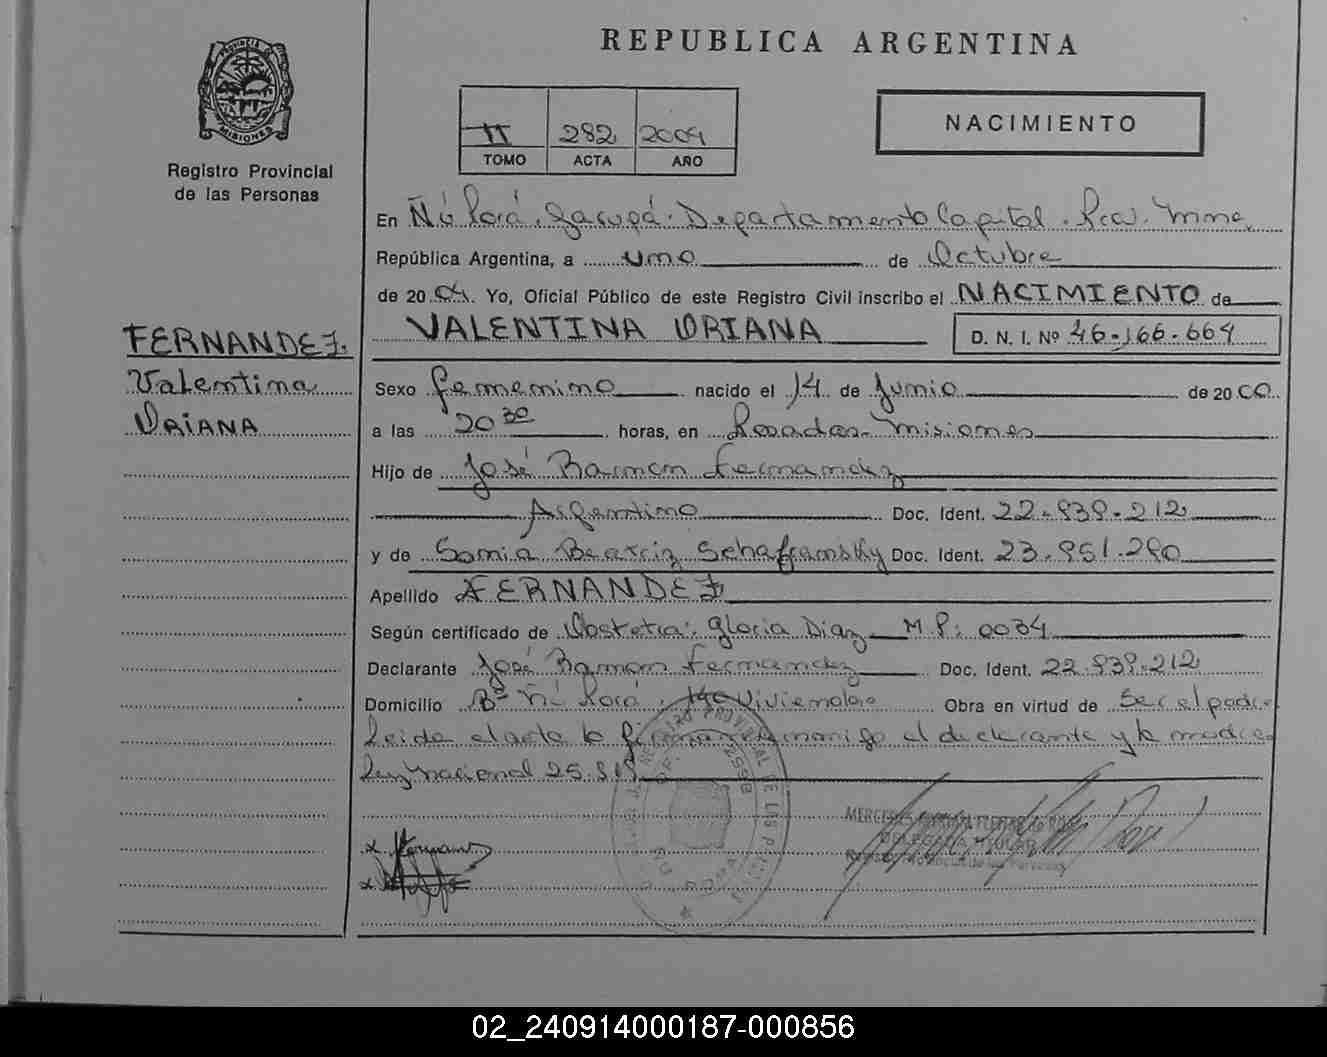 REPUBLICA ARGENTINA
PROVINCIA DE MISIONES
Registro Provincial
de las Personas
II 282 2004
TOMO ACTA AÑO
NACIMIENTO
En Ñú Porá. Garupá. Departamento Capital. Pcia. Mnes,
República Argentina, a uno de Octubre
de 2004. Yo, Oficial Público de este Registro Civil inscribo el NACIMIENTO de
VALENTINA ORIANA D. N. I. Nº 46.166.664
FERNANDEZ.
Valentina
ORIANA
Sexo femenino nacido el 14 de Junio de 2000
a las 20 30 horas, en Posadas-Misiones
Hijo de José Ramon Fernandez
Argentino Doc. Ident. 22.939.212
y de Sonia Beatriz Schafransky Doc. Ident. 23.951.290
Apellido FERNANDEZ
Según certificado de Obstetra: Gloria Diaz M.P: 0034
Declarante José Ramon Fernandez Doc. Ident. 22.939.212
Domicilio Bº Ñú Porá. Viviendas Obra en virtud de Ser el padre
Leida el acta la firman conmigo el declarante y la madre
Ley Nacional 25.819
MERCEDES
02_240914000187-000856